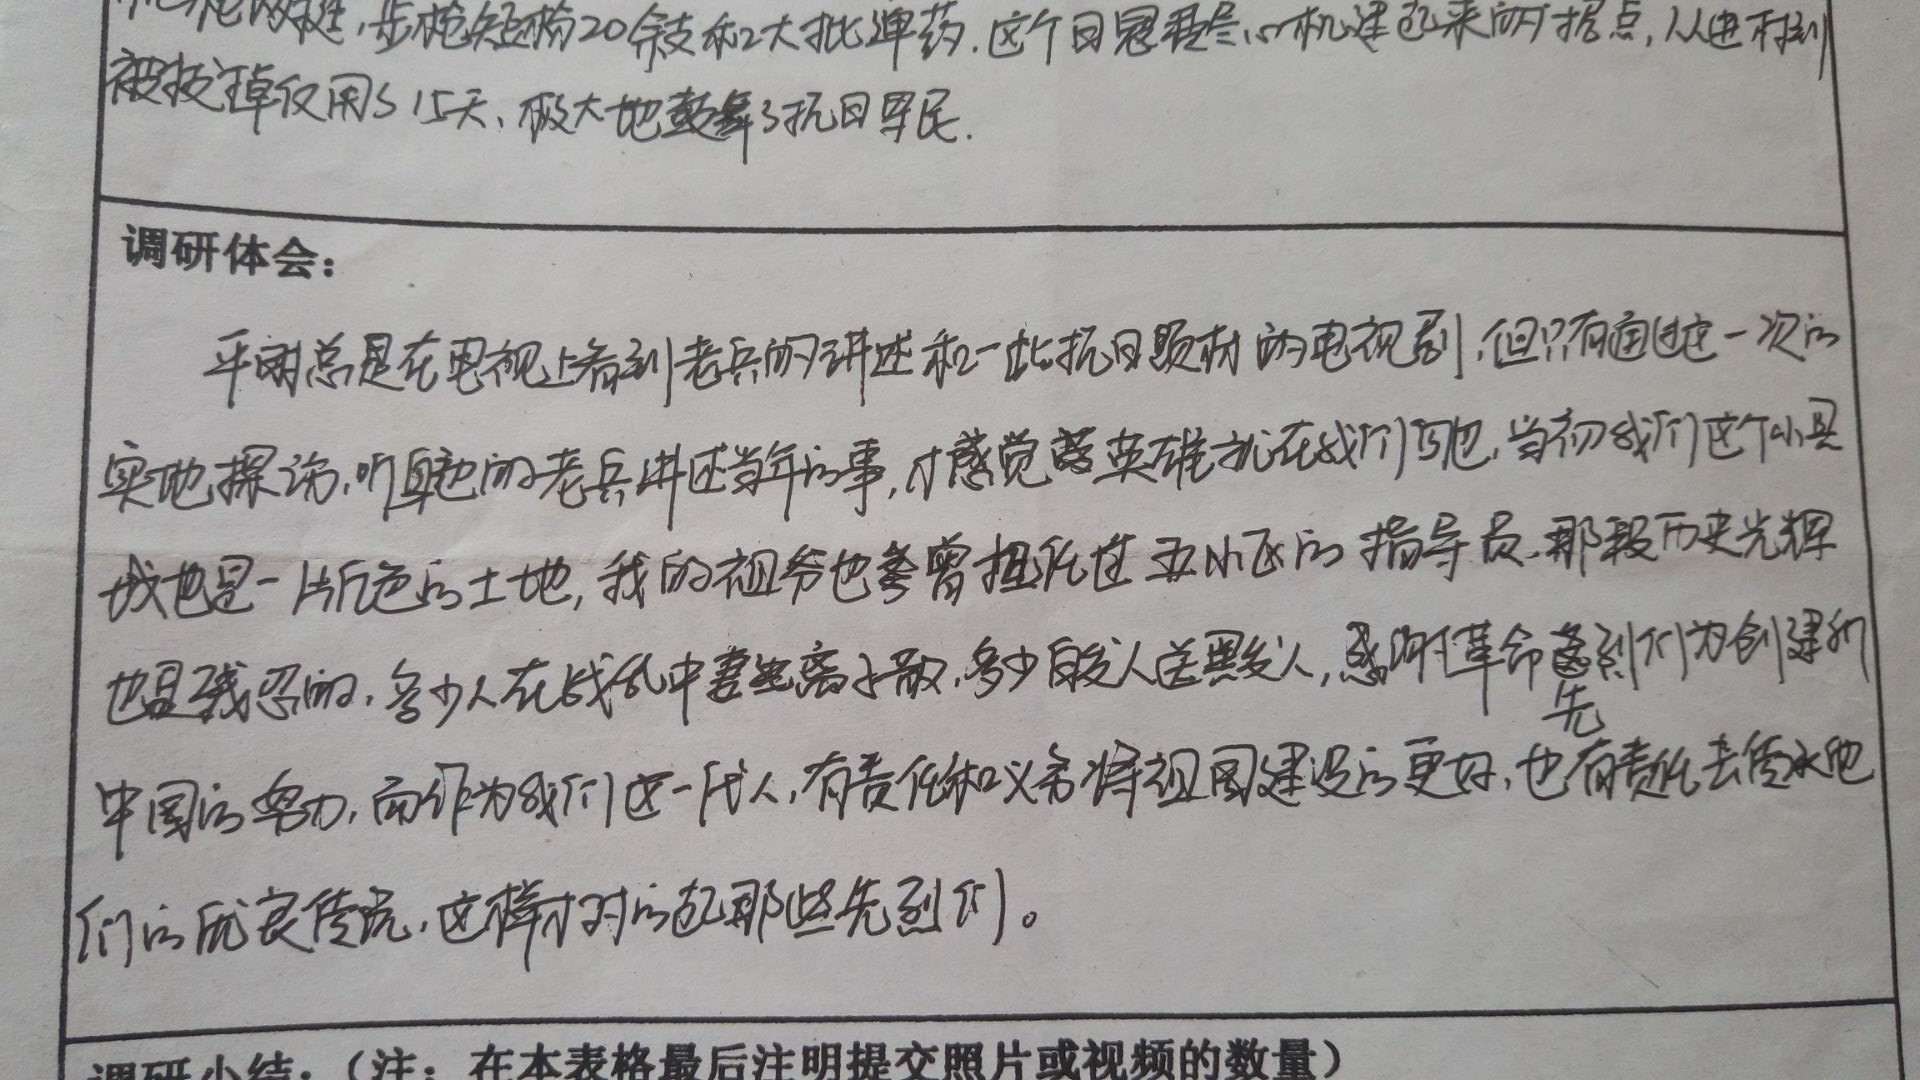 枪两挺，步枪短枪20余支和大批弹药.这个日寇费尽心机建起来的据点，从进村到
被拔掉仅用了15天，极大地鼓舞了抗日军民.
调研体会：
平时总是在电视上看到老兵的讲述和一些抗日题材的电视剧，但只有通过这一次的
实地探访，听身边的老兵讲述当年的事，才感觉英雄就在我们身边，当初我们这个小县
城也是一片红色的土地，我的祖爷也曾担任过五小区的指导员.那段历史光辉
也是残忍的，多少人在战乱中妻离子散，多少白发人送黑发人，感谢革命先烈们为创建新
中国的努力，而作为我们这一代人，有责任和义务将祖国建设的更好，也有责任去传承他
们的优良传统，这样才对的起那些先烈们。
调研小结：（注：在本表格最后注明提交照片或视频的数量）